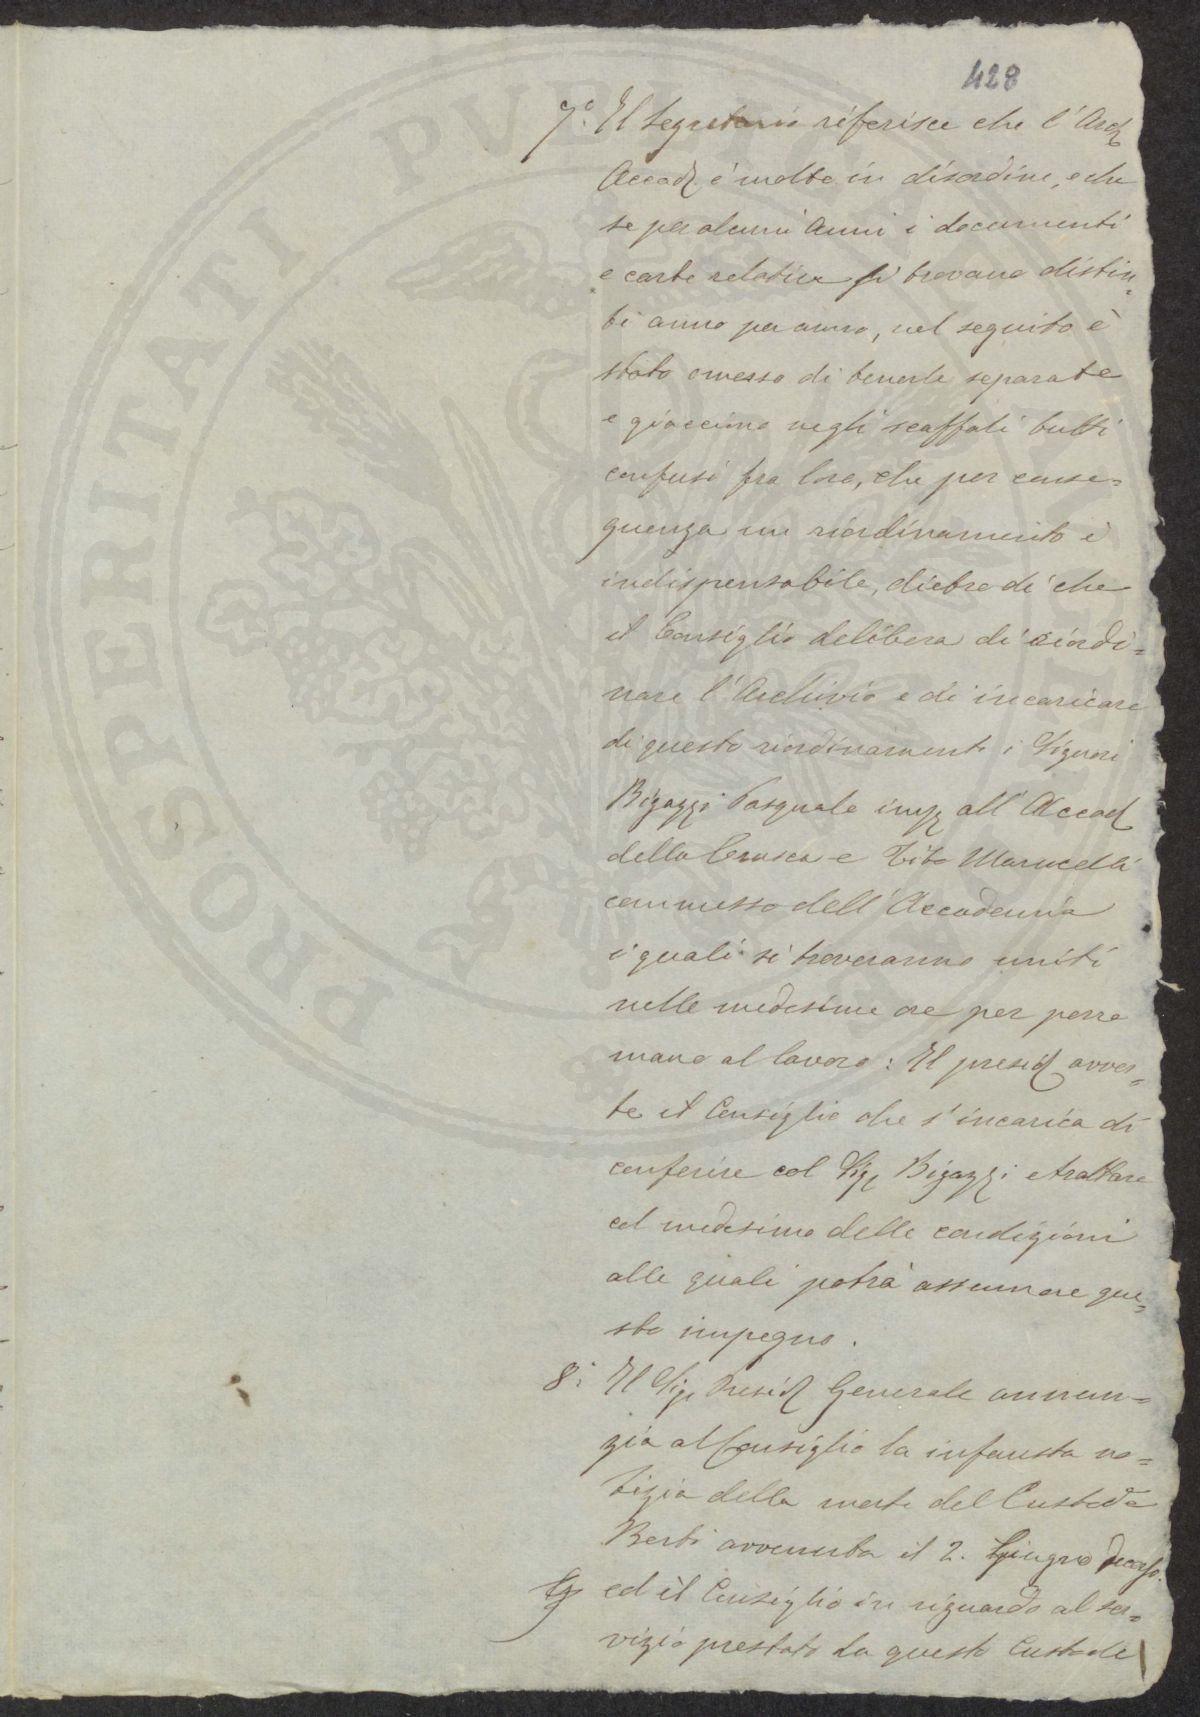 428
7.° Il Segretario riferisce che l'Arch
Accad è molto in disordine, e che
se per alcuni anni i documenti
e carte relative si trovano distin=
ti anno per anno, nel seguito è
stato omesso di tenerle separate
e giacciono negli scaffali tutti
confusi fra loro, che per conse=
guenza un riordinamento è
indispensabile, dietro di che
il Consiglio delibera di riordi=
nare l'Archivio e di incaricare
di questo riordinamento i Signori
Bigazzi Pasquale imp all'Accad
della Crusca e Tito Marucelli
commesso dell'Accademia
i quali si troveranno uniti
nelle medesime ore per porre
mano al lavoro: Il presid avver=
te il Consiglio che s'incarica di
conferire col Sig Bigazzi e trattare
col medesimo delle condizioni
alle quali potrà assumere que=
sto impegno.
8.° Il Sig Presid Generale annun=
zia al Consiglio la infausta no=
tizia della morte del Custode
Berti avvenuta il 2. Giugno decorso.
ed il Consiglio in riguardo al ser=
vizio prestato da questo Custode
PROSPERITATI PVBLICAE